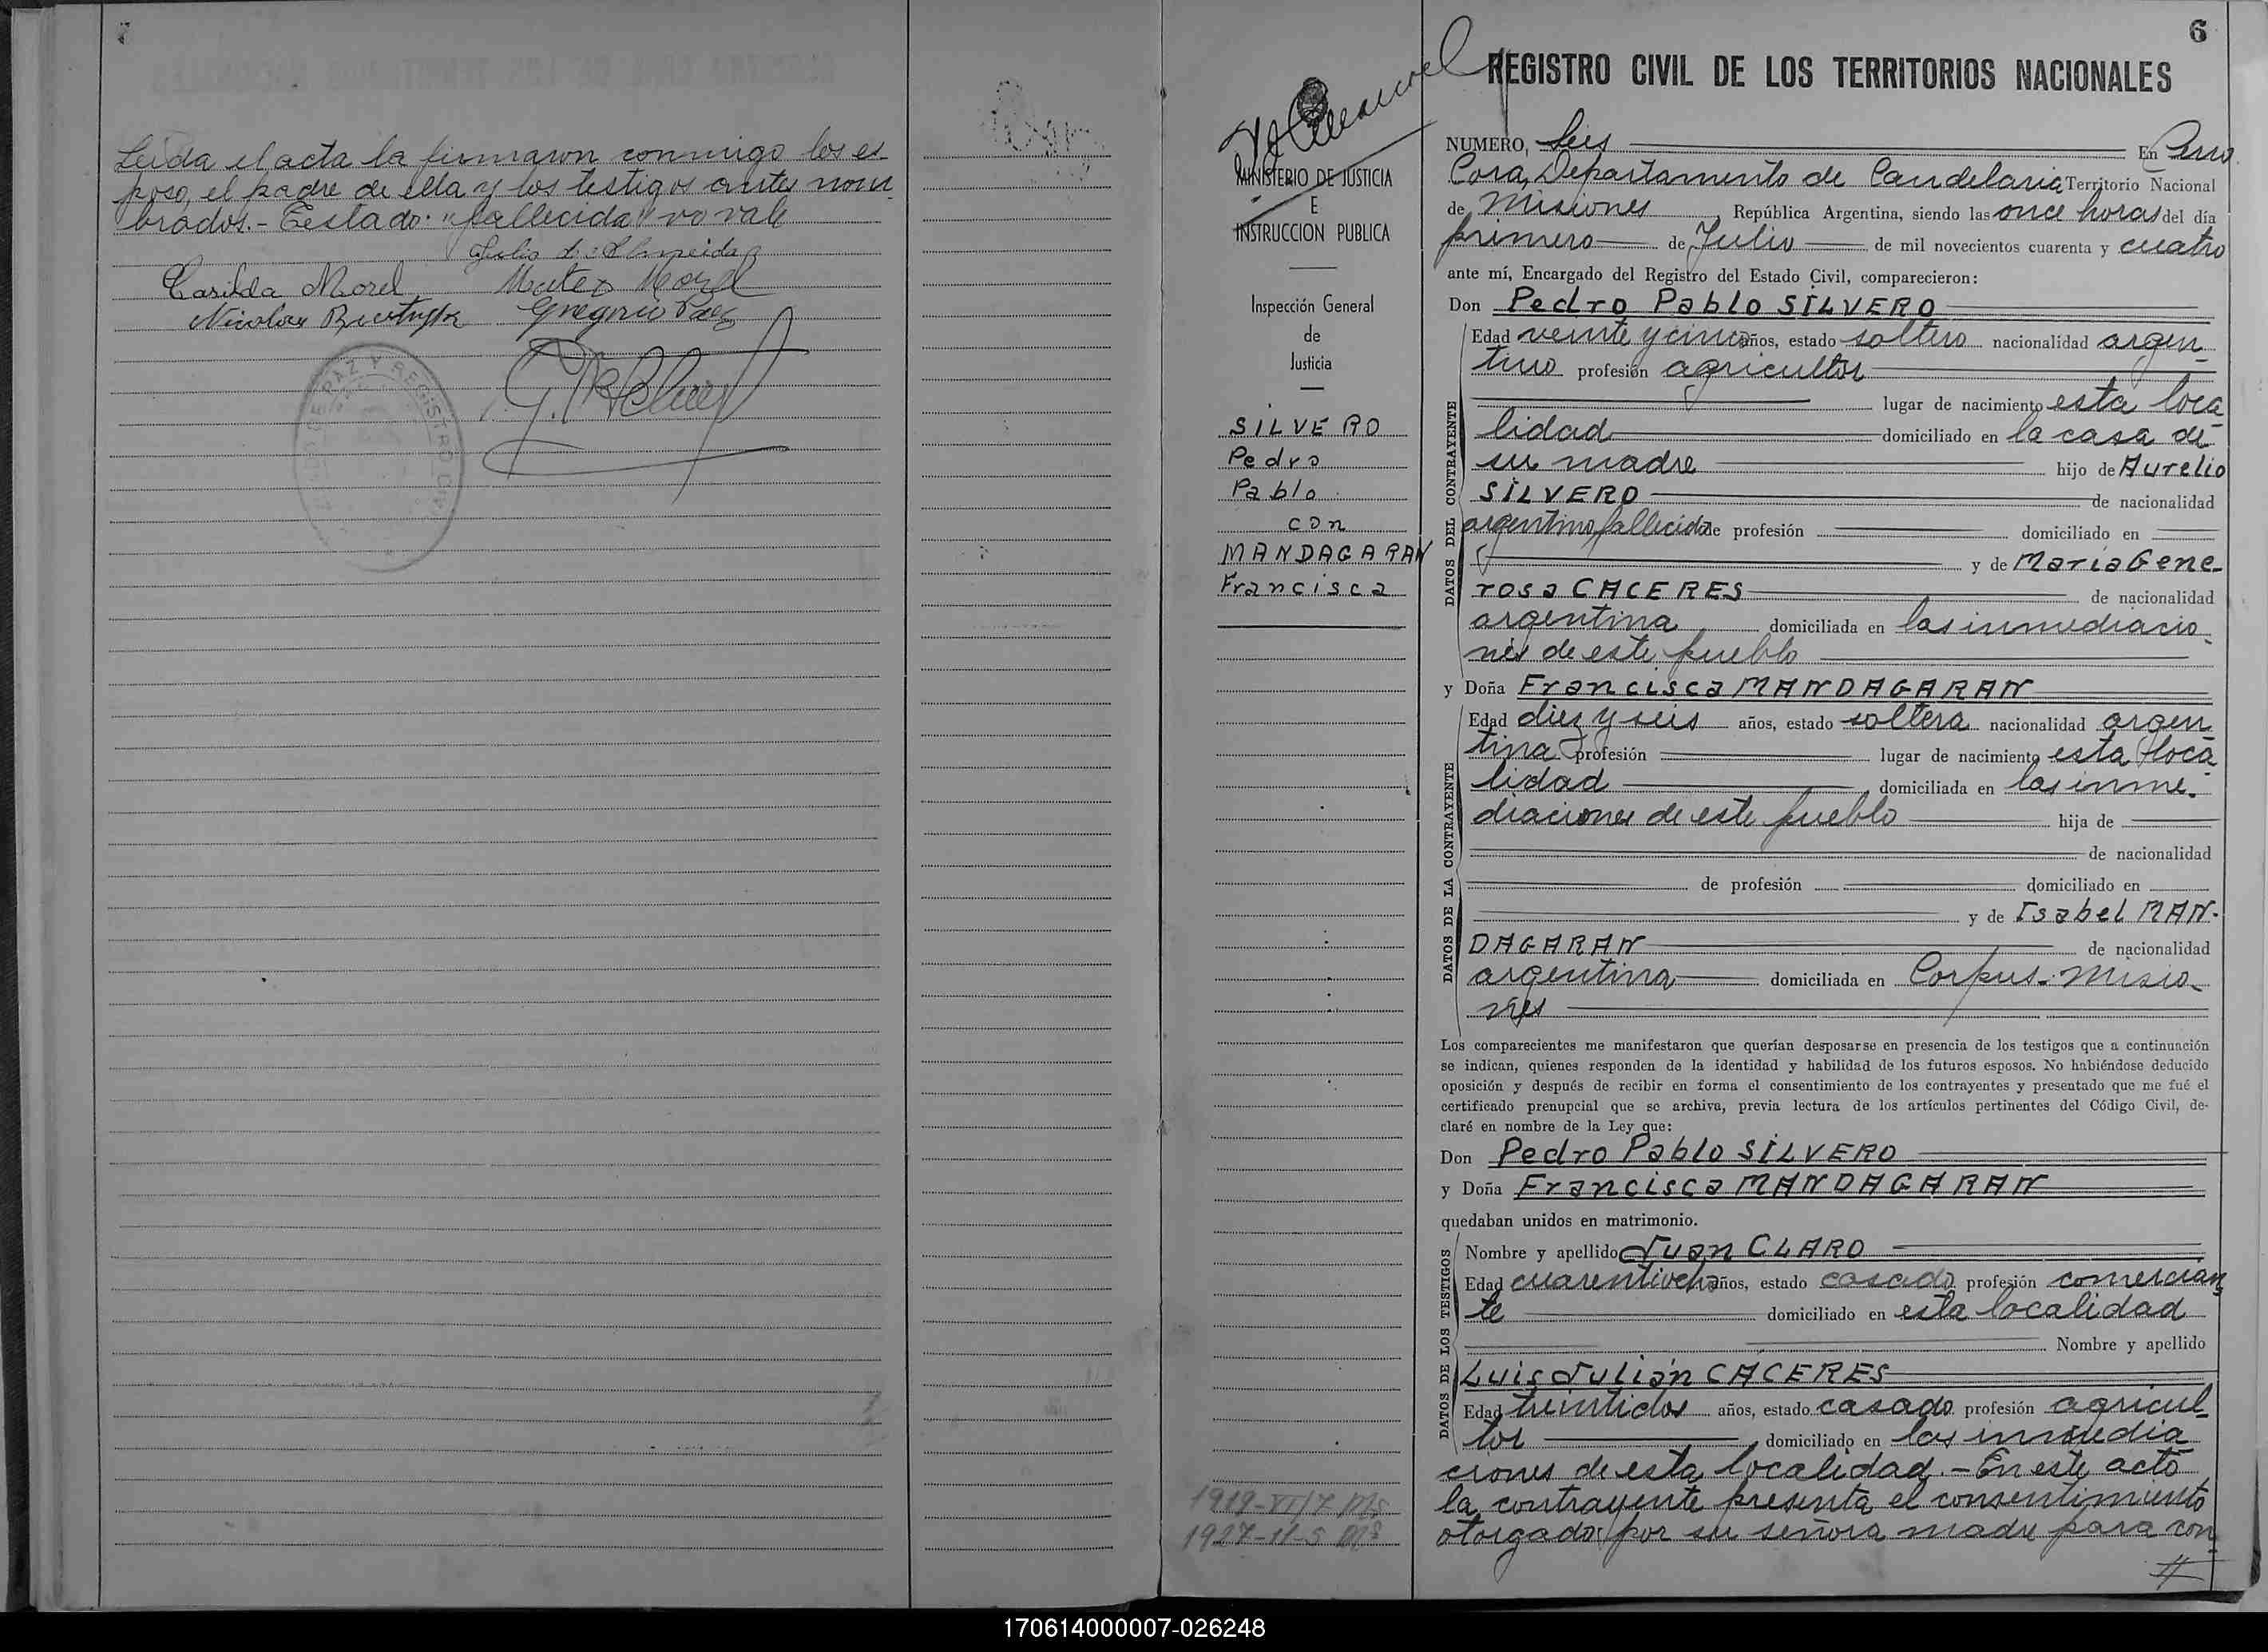 Leida el acta la firmaron conmigo los es-
poso, el padre de ella y los testigos antes nom-
brados.- Testado: "fallecida" no vale
Casilda Morel Mateo Morel
Nicolas Gregorio Paez
PAZ Y REGISTRO CIVIL
6
REGISTRO CIVIL DE LOS TERRITORIOS NACIONALES
MINISTERIO DE JUSTICIA
E
INSTRUCCION PUBLICA
Inspección General
de
Justicia
SILVERO
Pedro
Pablo
con
MANDAGARAN
Francisca
1919-VI/7
1927-11-5
NUMERO, Seis En Cerro
Cora, Departamento de Candelaria Territorio Nacional
de Misiones, República Argentina, siendo las once horas del día
primero de Julio de mil novecientos cuarenta y cuatro
ante mí, Encargado del Registro del Estado Civil, comparecieron:
Don Pedro Pablo SILVERO
DATOS DEL CONTRAYENTE
Edad veinte y cinco años, estado soltero nacionalidad argen-
tino profesión agricultor
lugar de nacimiento esta loca-
lidad domiciliado en la casa de
su madre hijo de Aurelio
SILVERO de nacionalidad
argentino, fallecido de profesión domiciliado en
y de María Gene-
rosa CACERES de nacionalidad
argentina domiciliada en las inmediacio-
nes de este pueblo
y Doña Francisca MANDAGARAN
DATOS DE LA CONTRAYENTE
Edad diez y seis años, estado soltera nacionalidad argen-
tina profesión lugar de nacimiento esta loca-
lidad domiciliada en las inme-
diaciones de este pueblo hija de
de nacionalidad
de profesión domiciliado en
y de Isabel MAN-
DAGARAN de nacionalidad
argentina domiciliada en Corpus.- Misio-
nes
Los comparecientes me manifestaron que querían desposarse en presencia de los testigos que a continuación
se indican, quienes responden de la identidad y habilidad de los futuros esposos. No habiéndose deducido
oposición y después de recibir en forma el consentimiento de los contrayentes y presentado que me fué el
certificado prenupcial que se archiva, previa lectura de los artículos pertinentes del Código Civil, de-
claré en nombre de la Ley que:
Don Pedro Pablo SILVERO
y Doña Francisca MANDAGARAN
quedaban unidos en matrimonio.
DATOS DE LOS TESTIGOS
Nombre y apellido Juan CLARO
Edad cuarentiocho años, estado casado profesión comercian-
te domiciliado en esta localidad
Nombre y apellido
Luis Julián CACERES
Edad treintidos años, estado casado profesión agricul-
tor domiciliado en las inmedia-
ciones de esta localidad.- En este acto
la contrayente presenta el consentimiento
otorgado por su señora madre para con-
//
170614000007-026248